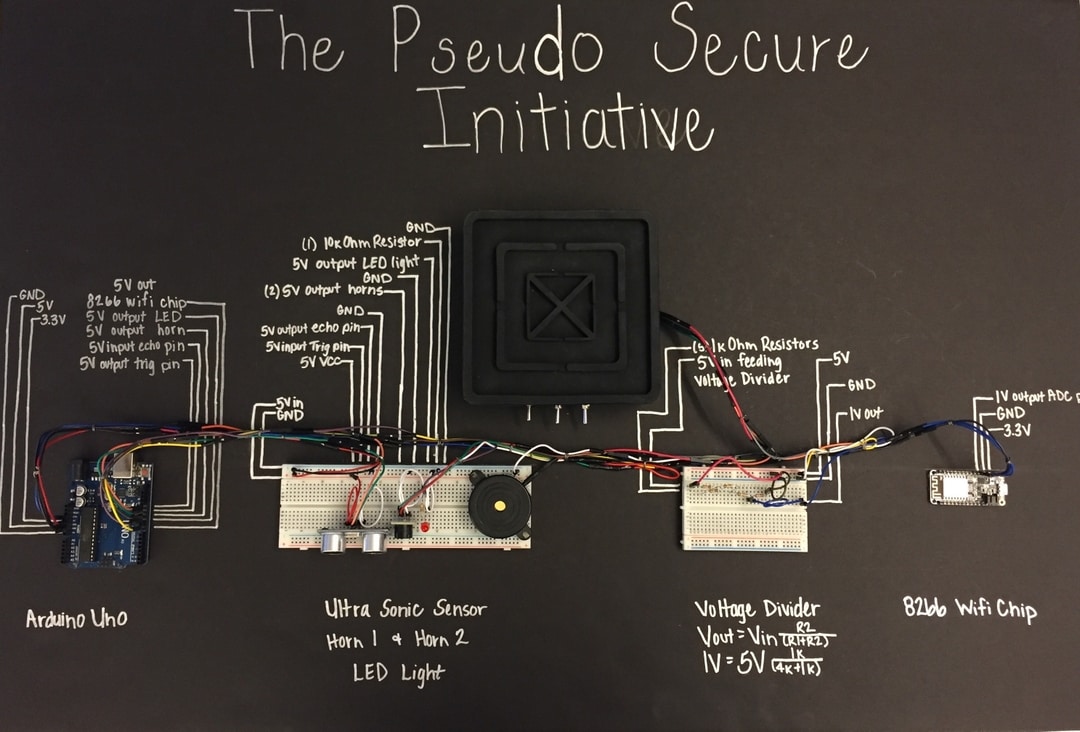 The Pseudo Secure
Initiative
GND
5V
3.3V
5V out
8266 wifi chip
5V output LED
5V output horn
5V input echo pin
5V output trig pin
GND
(1) 10K Ohm Resistor
5V output LED light
GND
(2) 5V output horns
GND
5V output echo pin
5V input Trig pin
5V VCC
5V in
GND
(5) 1K Ohm Resistors
5V in feeding
Voltage Divider
5V
GND
1V out
1V output ADC
GND
3.3V
Arduino Uno
Ultra Sonic Sensor
Horn 1 & Horn 2
LED Light
Voltage Divider
Vout = Vin R2/(R1+R2)
1V = 5V 1K/(4K+1K)
8266 Wifi Chip
UNO